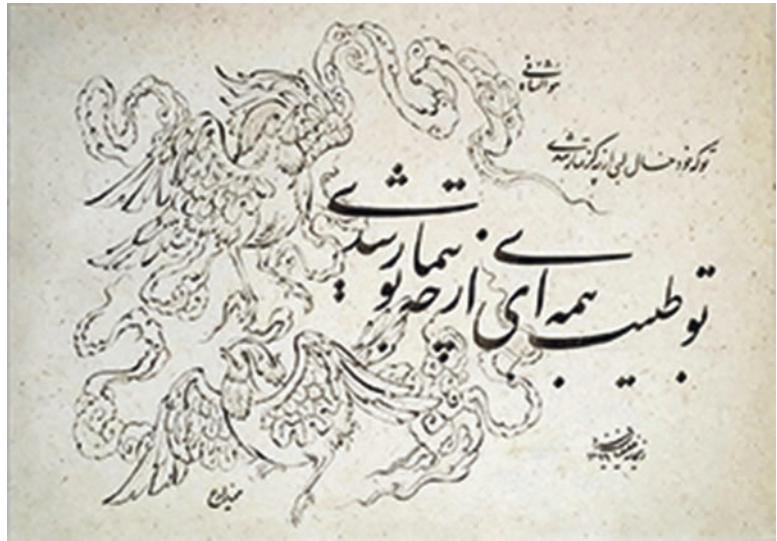 هوالشافی
تو که خود خال لبی از چه گرفتار شدی
تو طبیب همه‌ای از چه تو بیمار شدی